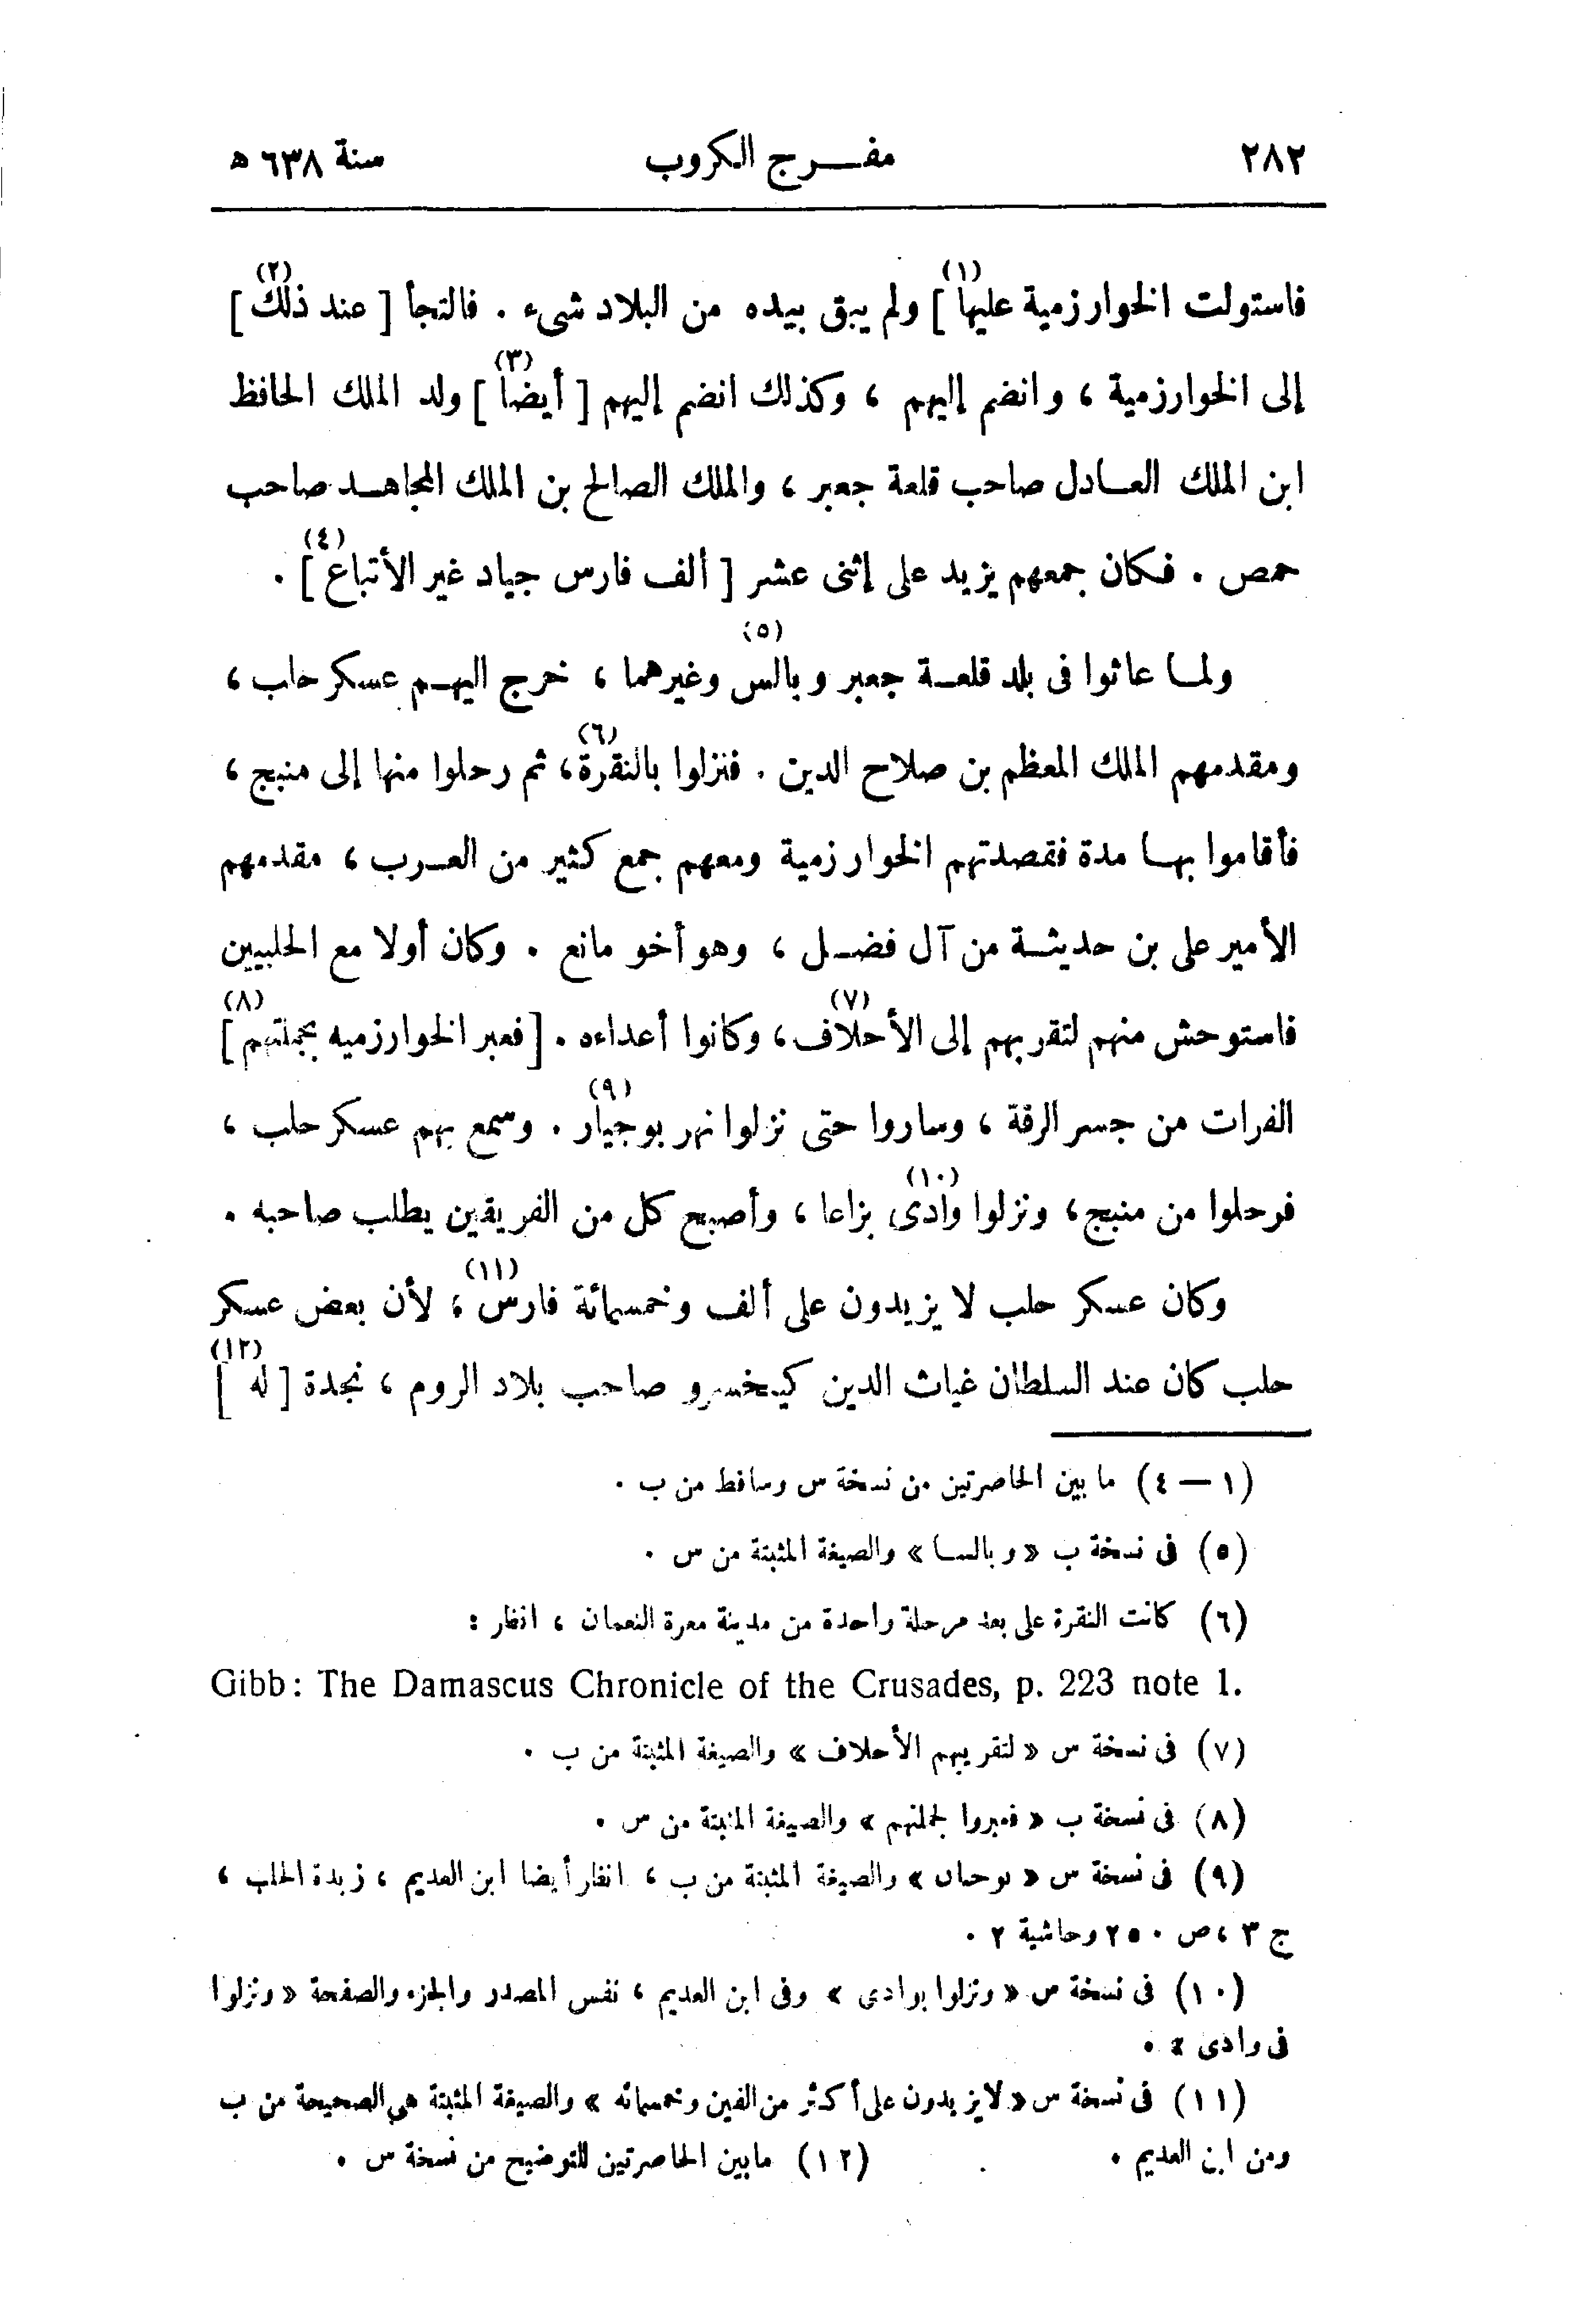 ٢٨٢ مفـــرج الكروب سنة ٦٣٨ هـ
فاستولت الخوارزمية عليها(١) ] ولم يبق بيده من البلاد شىء . فالتجأ [ عند ذلك(٢) ]
إلى الخوارزمية ، وانضم إليهم ، وكذلك انضم إليهم [ أيضا(٣) ] ولد الملك الحافظ
ابن الملك العـادل صاحب قلعة جعبر ، والملك الصالح بن الملك المجاهـد صاحب
حمص . فكان جمعهم يزيد على إثنى عشر [ ألف فارس جياد غير الأتباع(٤) ] .
ولمـا عاثوا فى بلد قلعـة جعبر وبالس(٥) وغيرهما ، خرج اليهـم عسكر حلب ،
ومقدمهم الملك المعظم بن صلاح الدين . فنزلوا بالنقرة(٦) ، ثم رحلوا منها إلى منبج ،
فأقاموا بهـا مدة فقصدتهم الخوارزمية ومعهم جمع كثير من العـرب ، مقدمهم
الأمير على بن حديثـة من آل فضـل ، وهو أخو مانع . وكان أولا مع الحلبيين
فاستوحش منهم لتقربهم إلى الأحلاف(٧) ، وكانوا أعداءه . [ فعبر الخوارزميه بجملتهم(٨) ]
الفرات من جسر الرقة ، وساروا حتى نزلوا نهر بوجيار(٩) . وسمع بهم عسكر حلب ،
فرحلوا من منبج ، ونزلوا وادى(١٠) بزاعا ، وأصبح كل من الفريقين يطلب صاحبه .
وكان عسكر حلب لا يزيدون على ألف وخمسمائة فارس(١١) ، لأن بعض عسكر
حلب كان عند السلطان غياث الدين كيخسرو صاحب بلاد الروم ، نجدة [ له(١٢) ]
(١ — ٤) ما بين الحاصرتين من نسخة س وساقط من ب .
(٥) فى نسخة ب « وبالسـا » والصيغة المثبتة من س .
(٦) كانت النقرة على بعد مرحلة واحدة من مدينة معرة النعمان ، انظر :
Gibb: The Damascus Chronicle of the Crusades, p. 223 note 1.
(٧) فى نسخة س « لتقريبهم الأحلاف » والصيغة المثبتة من ب .
(٨) فى نسخة ب « فعبروا لجملتهم » والصيغة المثبتة من س .
(٩) فى نسخة س « بوحيان » والصيغة المثبتة من ب ، انظر أيضا ابن العديم ، زبدة الحلب ،
ج ٣ ، ص ٢٥٠ وحاشية ٢ .
(١٠) فى نسخة س « ونزلوا بوادى » وفى ابن العديم ، نفس المصدر والجزء والصفحة « ونزلوا
فى وادى » .
(١١) فى نسخة س « لايزيدون على أكثر من الفين وخمسمائه » والصيغة المثبتة هى الصحيحة من ب
ومن ابن العديم . (١٢) مابين الحاصرتين للتوضيح من نسخة س .